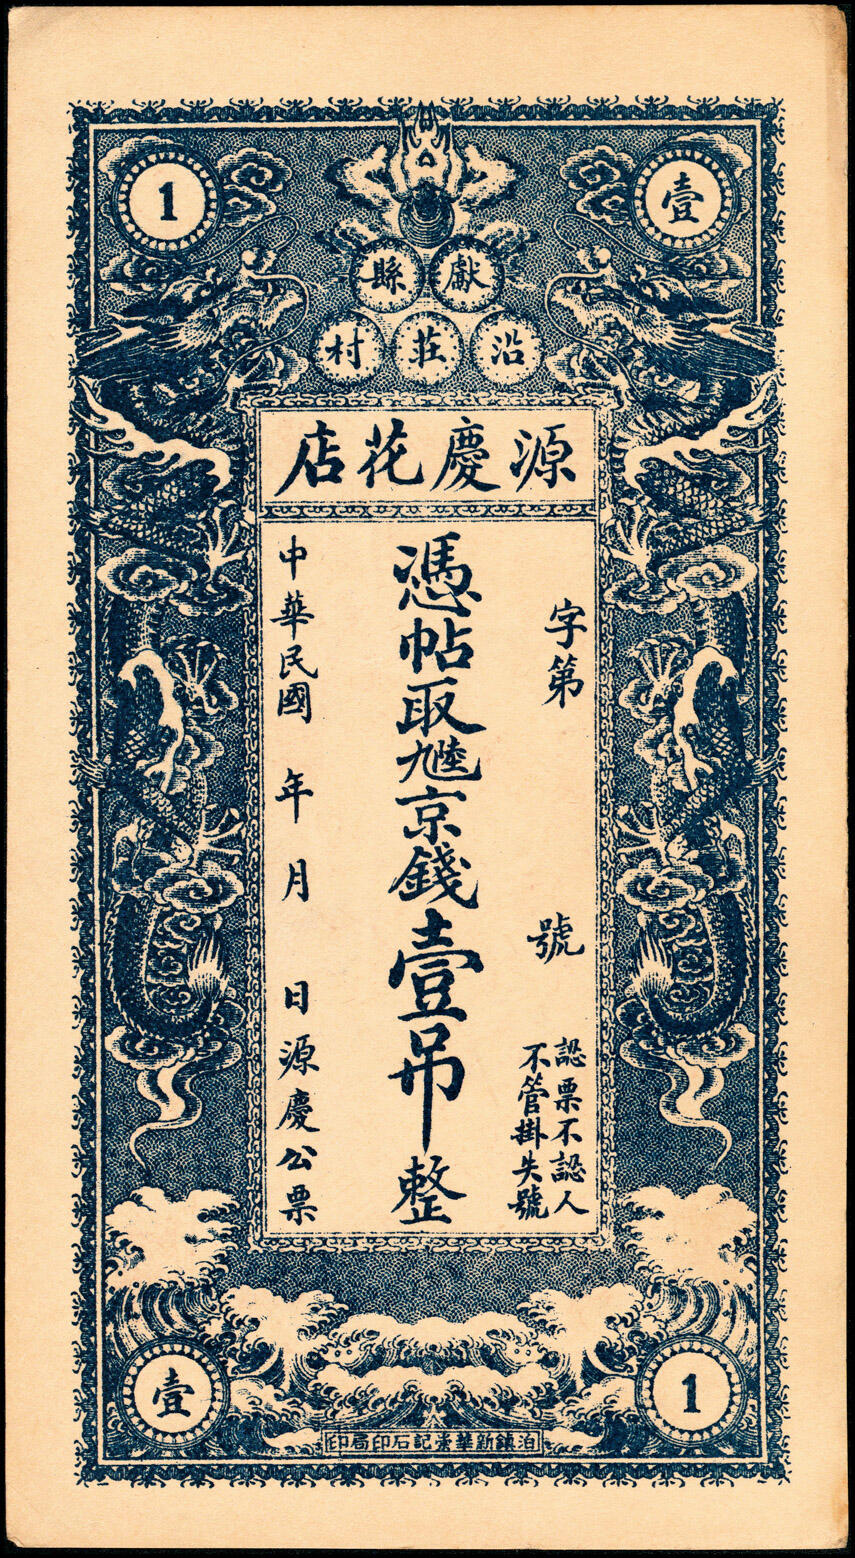 壹
1
獻縣
沿莊村
源慶花店
字第 號
認票不認人
不管掛失號
憑帖取九陸京錢壹吊整
中華民國 年 月 日源慶公票
1
壹
泊鎮新華崇記石印局印